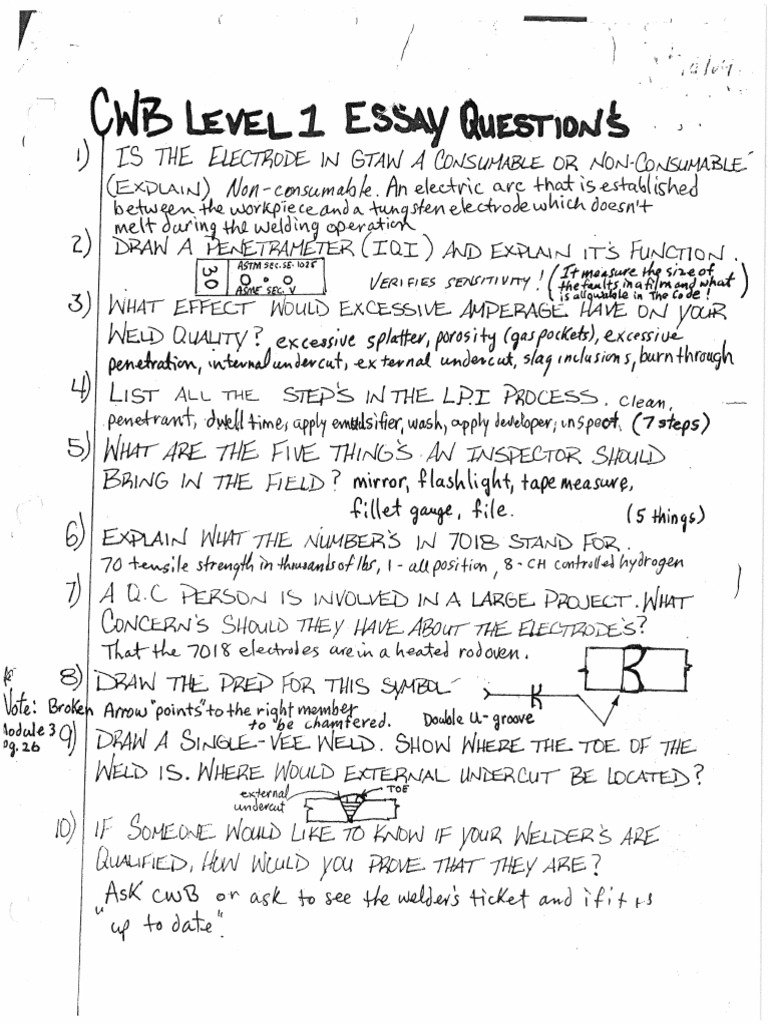 CWB LEVEL 1 ESSAY QUESTION'S
1) IS THE ELECTRODE IN GTAW A CONSUMABLE OR NON-CONSUMABLE
(EXPLAIN) Non-consumable. An electric arc that is established
between the workpiece and a tungsten electrode which doesn't
melt during the welding operation
2) DRAW A PENETRAMETER (IQI) AND EXPLAIN IT'S FUNCTION.
30 ASTM SEC. SE-1025
ASME SEC. V
VERIFIES SENSITIVITY! (It measure the size of
the faults in a film and what
is allowable in The Code!)
3) WHAT EFFECT WOULD EXCESSIVE AMPERAGE HAVE ON YOUR
WELD QUALITY? excessive splatter, porosity (gas pockets), excessive
penetration, internal undercut, external undercut, slag inclusions, burn through
4) LIST ALL THE STEP'S IN THE L.P.I PROCESS. clean,
penetrant, dwell time, apply emulsifier, wash, apply developer, inspect. (7 steps)
5) WHAT ARE THE FIVE THING'S AN INSPECTOR SHOULD
BRING IN THE FIELD? mirror, flashlight, tape measure,
fillet gauge, file. (5 things)
6) EXPLAIN WHAT THE NUMBER'S IN 7018 STAND FOR.
70 tensile strength in thousands of lbs, 1 - all position, 8 - CH controlled hydrogen
7) A Q.C PERSON IS INVOLVED IN A LARGE PROJECT. WHAT
CONCERN'S SHOULD THEY HAVE ABOUT THE ELECTRODE'S?
That the 7018 electrodes are in a heated rod oven.
8) DRAW THE PREP FOR THIS SYMBOL
Note: Broken Arrow "points" to the right member
to be chamfered. Double U-groove
Module 3
pg. 26
9) DRAW A SINGLE-VEE WELD. SHOW WHERE THE TOE OF THE
WELD IS. WHERE WOULD EXTERNAL UNDERCUT BE LOCATED?
external
undercut
TOE
10) IF SOMEONE WOULD LIKE TO KNOW IF YOUR WELDER'S ARE
QUALIFIED, HOW WOULD YOU PROVE THAT THEY ARE?
ASK CWB or ask to see the welder's ticket and if it is
"up to date".